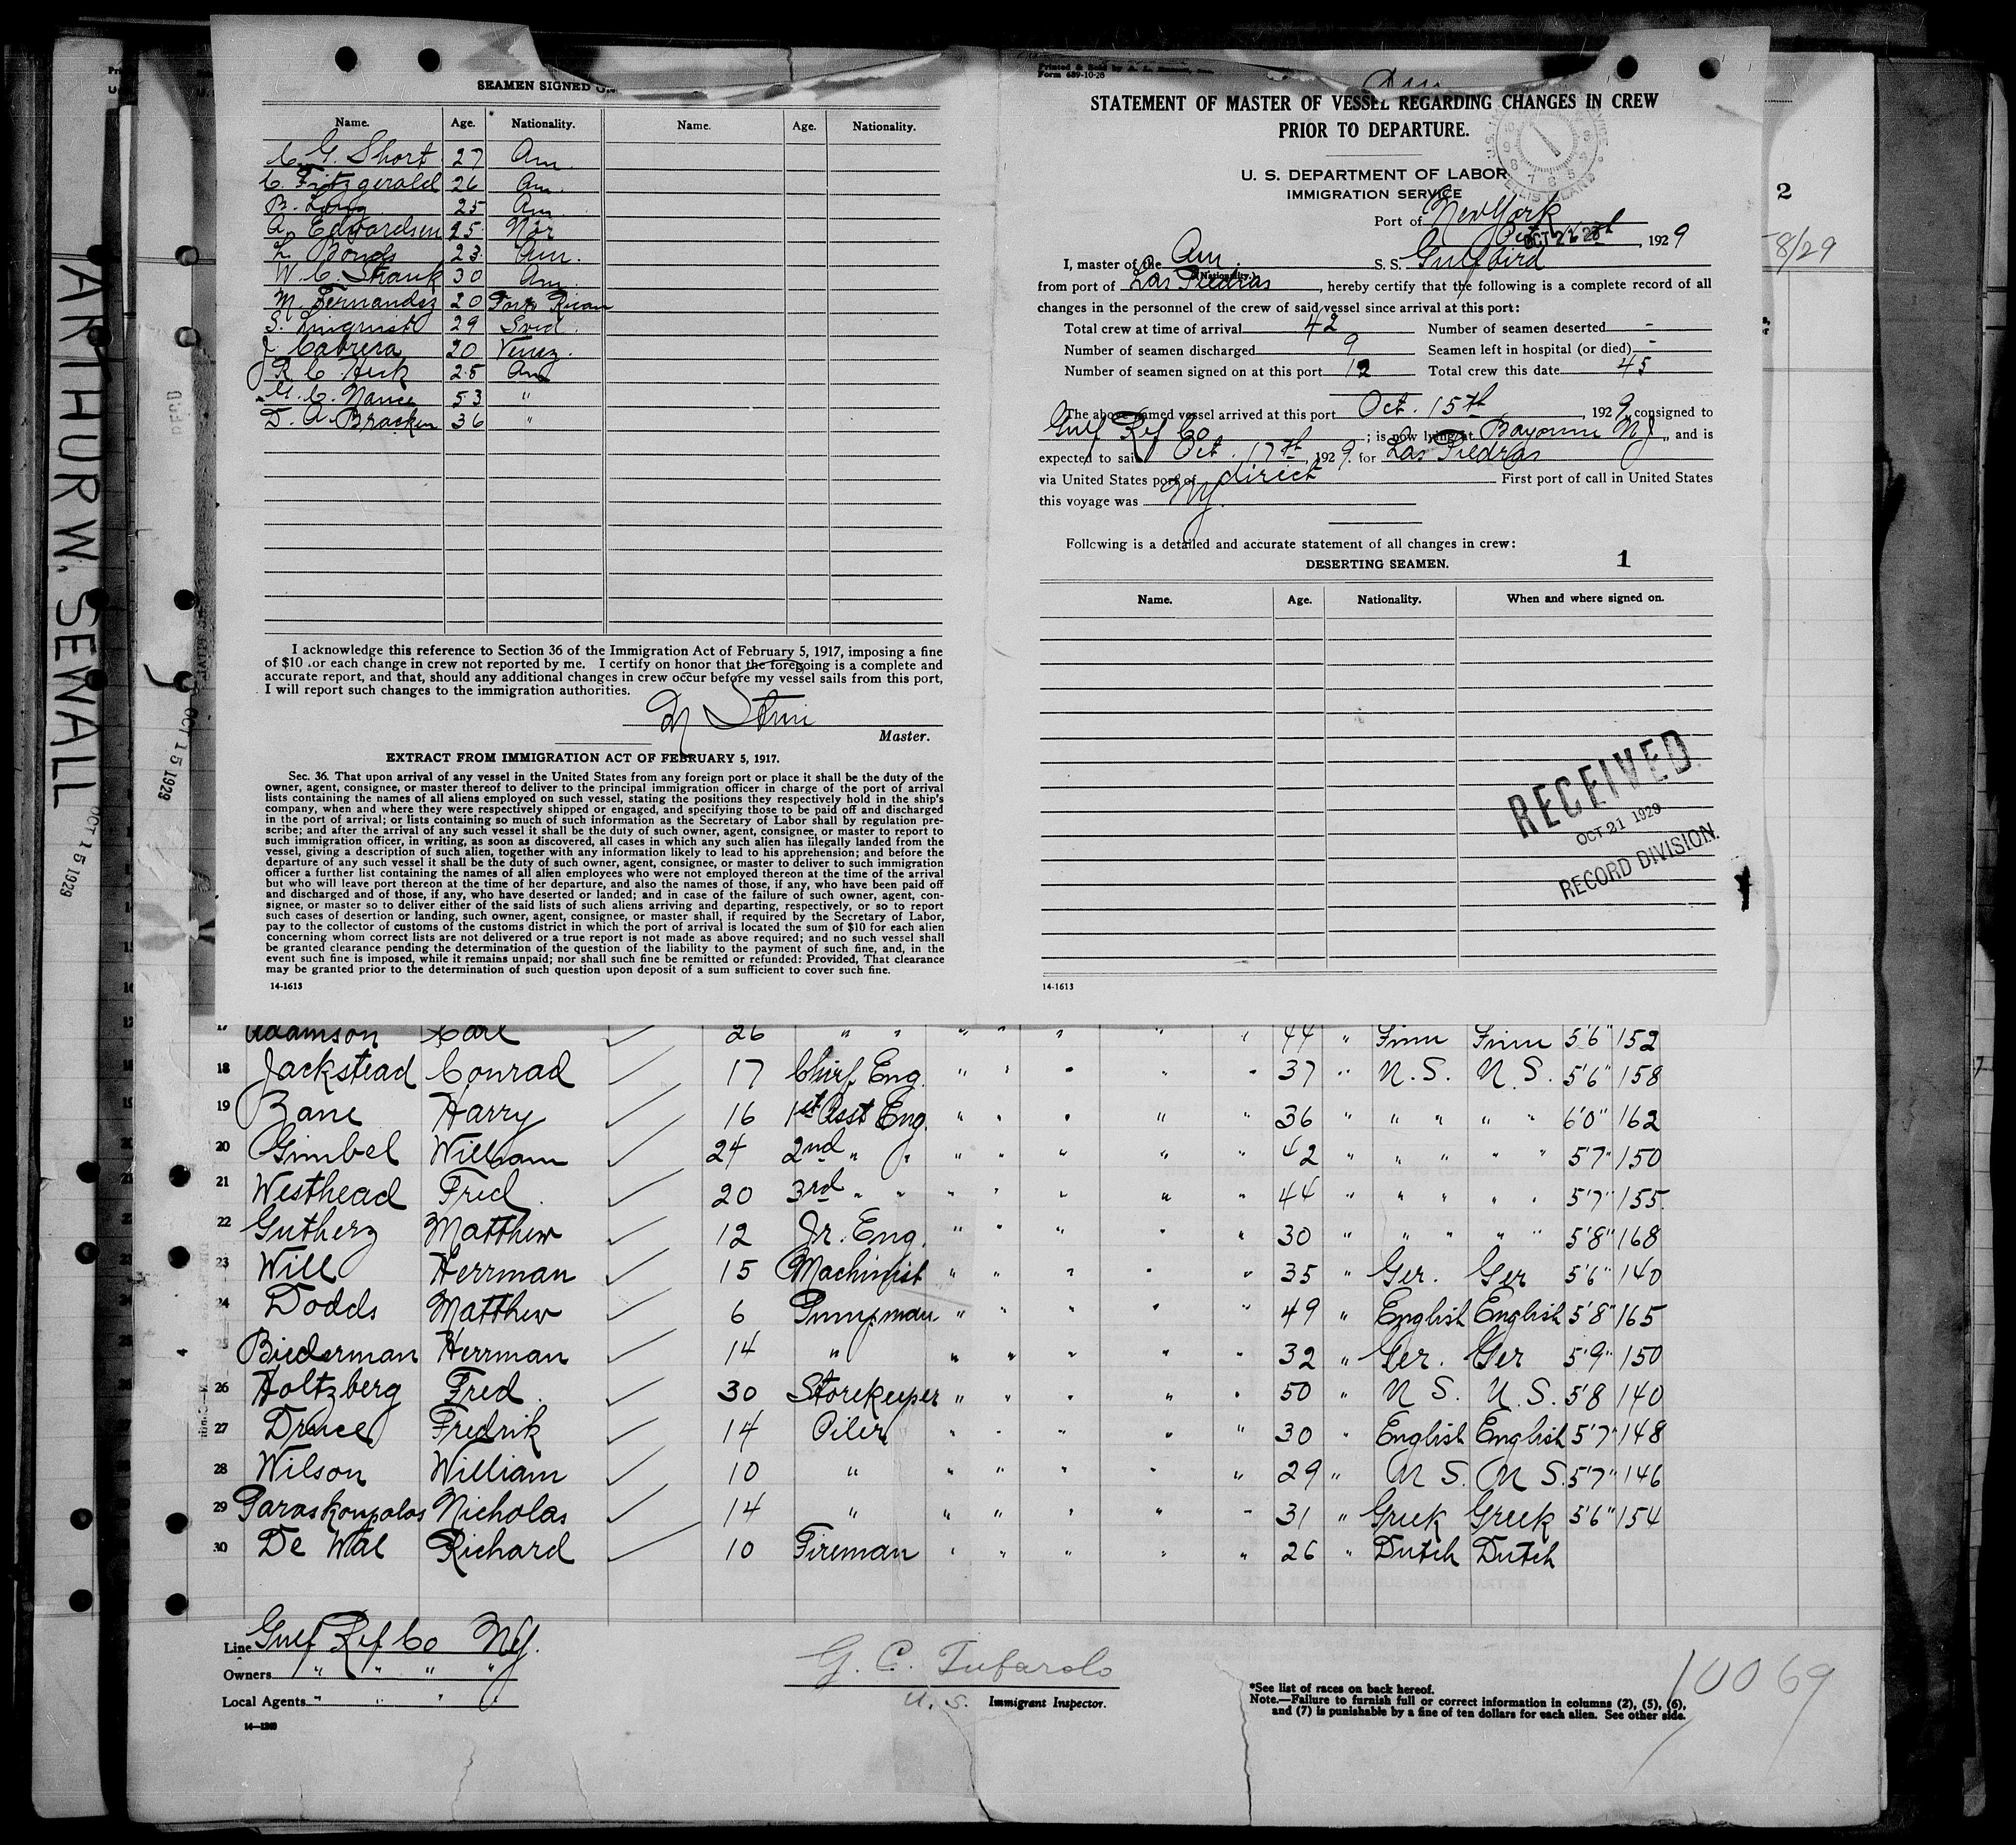 ARTHUR W. SEWALL
OCT 15 1929
OCT 15 1929
SEAMEN SIGNED ON
Name. Age. Nationality. Name. Age. Nationality.
C. G. Short 27 Am.
C. Fitzgerald 26 Am.
B. Long 25 Am
A. Edwardsen 25 Nor
L. Bonds 23 Am.
W. C. Strank 30 Am.
M. Fernandez 20 Porto Rican
S. Linquist 29 Swed.
J. Cabrera 20 Venez.
R. C. Heck 25 Am
G. C. Nance 53 "
D. A. Bracken 36 "
I acknowledge this reference to Section 36 of the Immigration Act of February 5, 1917, imposing a fine
of $10 .or each change in crew not reported by me. I certify on honor that the foregoing is a complete and
accurate report, and that, should any additional changes in crew occur before my vessel sails from this port,
I will report such changes to the immigration authorities.
Master.
EXTRACT FROM IMMIGRATION ACT OF FEBRUARY 5, 1917.
Sec. 36. That upon arrival of any vessel in the United States from any foreign port or place it shall be the duty of the
owner, agent, consignee, or master thereof to deliver to the principal immigration officer in charge of the port of arrival
lists containing the names of all aliens employed on such vessel, stating the positions they respectively hold in the ship's
company, when and where they were respectively shipped or engaged, and specifying those to be paid off and discharged
in the port of arrival; or lists containing so much of such information as the Secretary of Labor shall by regulation pre-
scribe; and after the arrival of any such vessel it shall be the duty of such owner, agent, consignee, or master to report to
such immigration officer, in writing, as soon as discovered, all cases in which any such alien has illegally landed from the
vessel, giving a description of such alien, together with any information likely to lead to his apprehension; and before the
departure of any such vessel it shall be the duty of such owner, agent, consignee, or master to deliver to such immigration
officer a further list containing the names of all alien employees who were not employed thereon at the time of the arrival
but who will leave port thereon at the time of her departure, and also the names of those, if any, who have been paid off
and discharged and of those, if any, who have deserted or landed; and in case of the failure of such owner, agent, con-
signee, or master so to deliver either of the said lists of such aliens arriving and departing, respectively, or so to report
such cases of desertion or landing, such owner, agent, consignee, or master shall, if required by the Secretary of Labor,
pay to the collector of customs of the customs district in which the port of arrival is located the sum of $10 for each alien
concerning whom correct lists are not delivered or a true report is not made as above required; and no such vessel shall
be granted clearance pending the determination of the question of the liability to the payment of such fine, and, in the
event such fine is imposed, while it remains unpaid; nor shall such fine be remitted or refunded: Provided, That clearance
may be granted prior to the determination of such question upon deposit of a sum sufficient to cover such fine.
14-1613
Form 689-10-28
STATEMENT OF MASTER OF VESSEL REGARDING CHANGES IN CREW
PRIOR TO DEPARTURE.
U. S. DEPARTMENT OF LABOR
IMMIGRATION SERVICE
Port of New York
OCT 21 , 1929
I, master of the Am. S. S. Gulfbird
(Nationality.)
from port of Las Piedras , hereby certify that the following is a complete record of all
changes in the personnel of the crew of said vessel since arrival at this port:
Total crew at time of arrival 42 Number of seamen deserted -
Number of seamen discharged 9 Seamen left in hospital (or died) -
Number of seamen signed on at this port 12 Total crew this date 45
The above named vessel arrived at this port Oct. 15th , 1929, consigned to
Gulf Ref Co ; is now lying at Bayonne NJ , and is
expected to sail Oct. 17th , 1929. for Las Piedras
via United States port of direct First port of call in United States
this voyage was NY.
Following is a detailed and accurate statement of all changes in crew:
DESERTING SEAMEN. 1
Name. Age. Nationality. When and where signed on.
RECEIVED
OCT 21 1929
RECORD DIVISION
14-1613
2
8/29
17 Adamson Karl 26 " " " " " " " 44 " Finn Finn 5'6" 152
18 Jackstead Conrad 17 Chief Eng. " " " " " 37 " U.S. U.S. 5'6" 158
19 Bane Harry 16 1st Asst Eng. " " " " " 36 " " " " " 6'0" 162
20 Gimbel William 24 2nd " " " " " " " 42 " " " " " 5'7" 150
21 Westhead Fred 20 3rd " " " " " " " 44 " " " " " 5'7" 155
22 Gutherz Matthew 12 Jr. Eng. " " " " " 30 " " " " " 5'8" 168
23 Will Herrman 15 Machinist " " " " " 35 " Ger. Ger 5'6" 140
24 Dodds Matthew 6 Pumpman " " " " " 49 " English English 5'8" 165
25 Biederman Herrman 14 " " " " " " 32 " Ger. Ger 5'9" 150
26 Holtzberg Fred 30 Storekeeper " " " " " 50 " U.S. U.S. 5'8 140
27 Druce Fredrik 14 Oiler " " " " " 30 " English English 5'7" 148
28 Wilson William 10 " " " " " " 29 " U.S. U.S. 5'7" 146
29 Paraskoupolos Nicholas 14 " " " " " " 31 " Greek Greek 5'6" 154
30 De Wal Richard 10 Fireman " " " " " 26 " Dutch Dutch
Line Gulf Ref Co NY.
Owners " " " "
Local Agents " " " "
14-1240
G. C. Tufarolo
U. S. Immigrant Inspector.
*See list of races on back hereof.
Note.—Failure to furnish full or correct information in columns (2), (5), (6),
and (7) is punishable by a fine of ten dollars for each alien. See other side.
10069